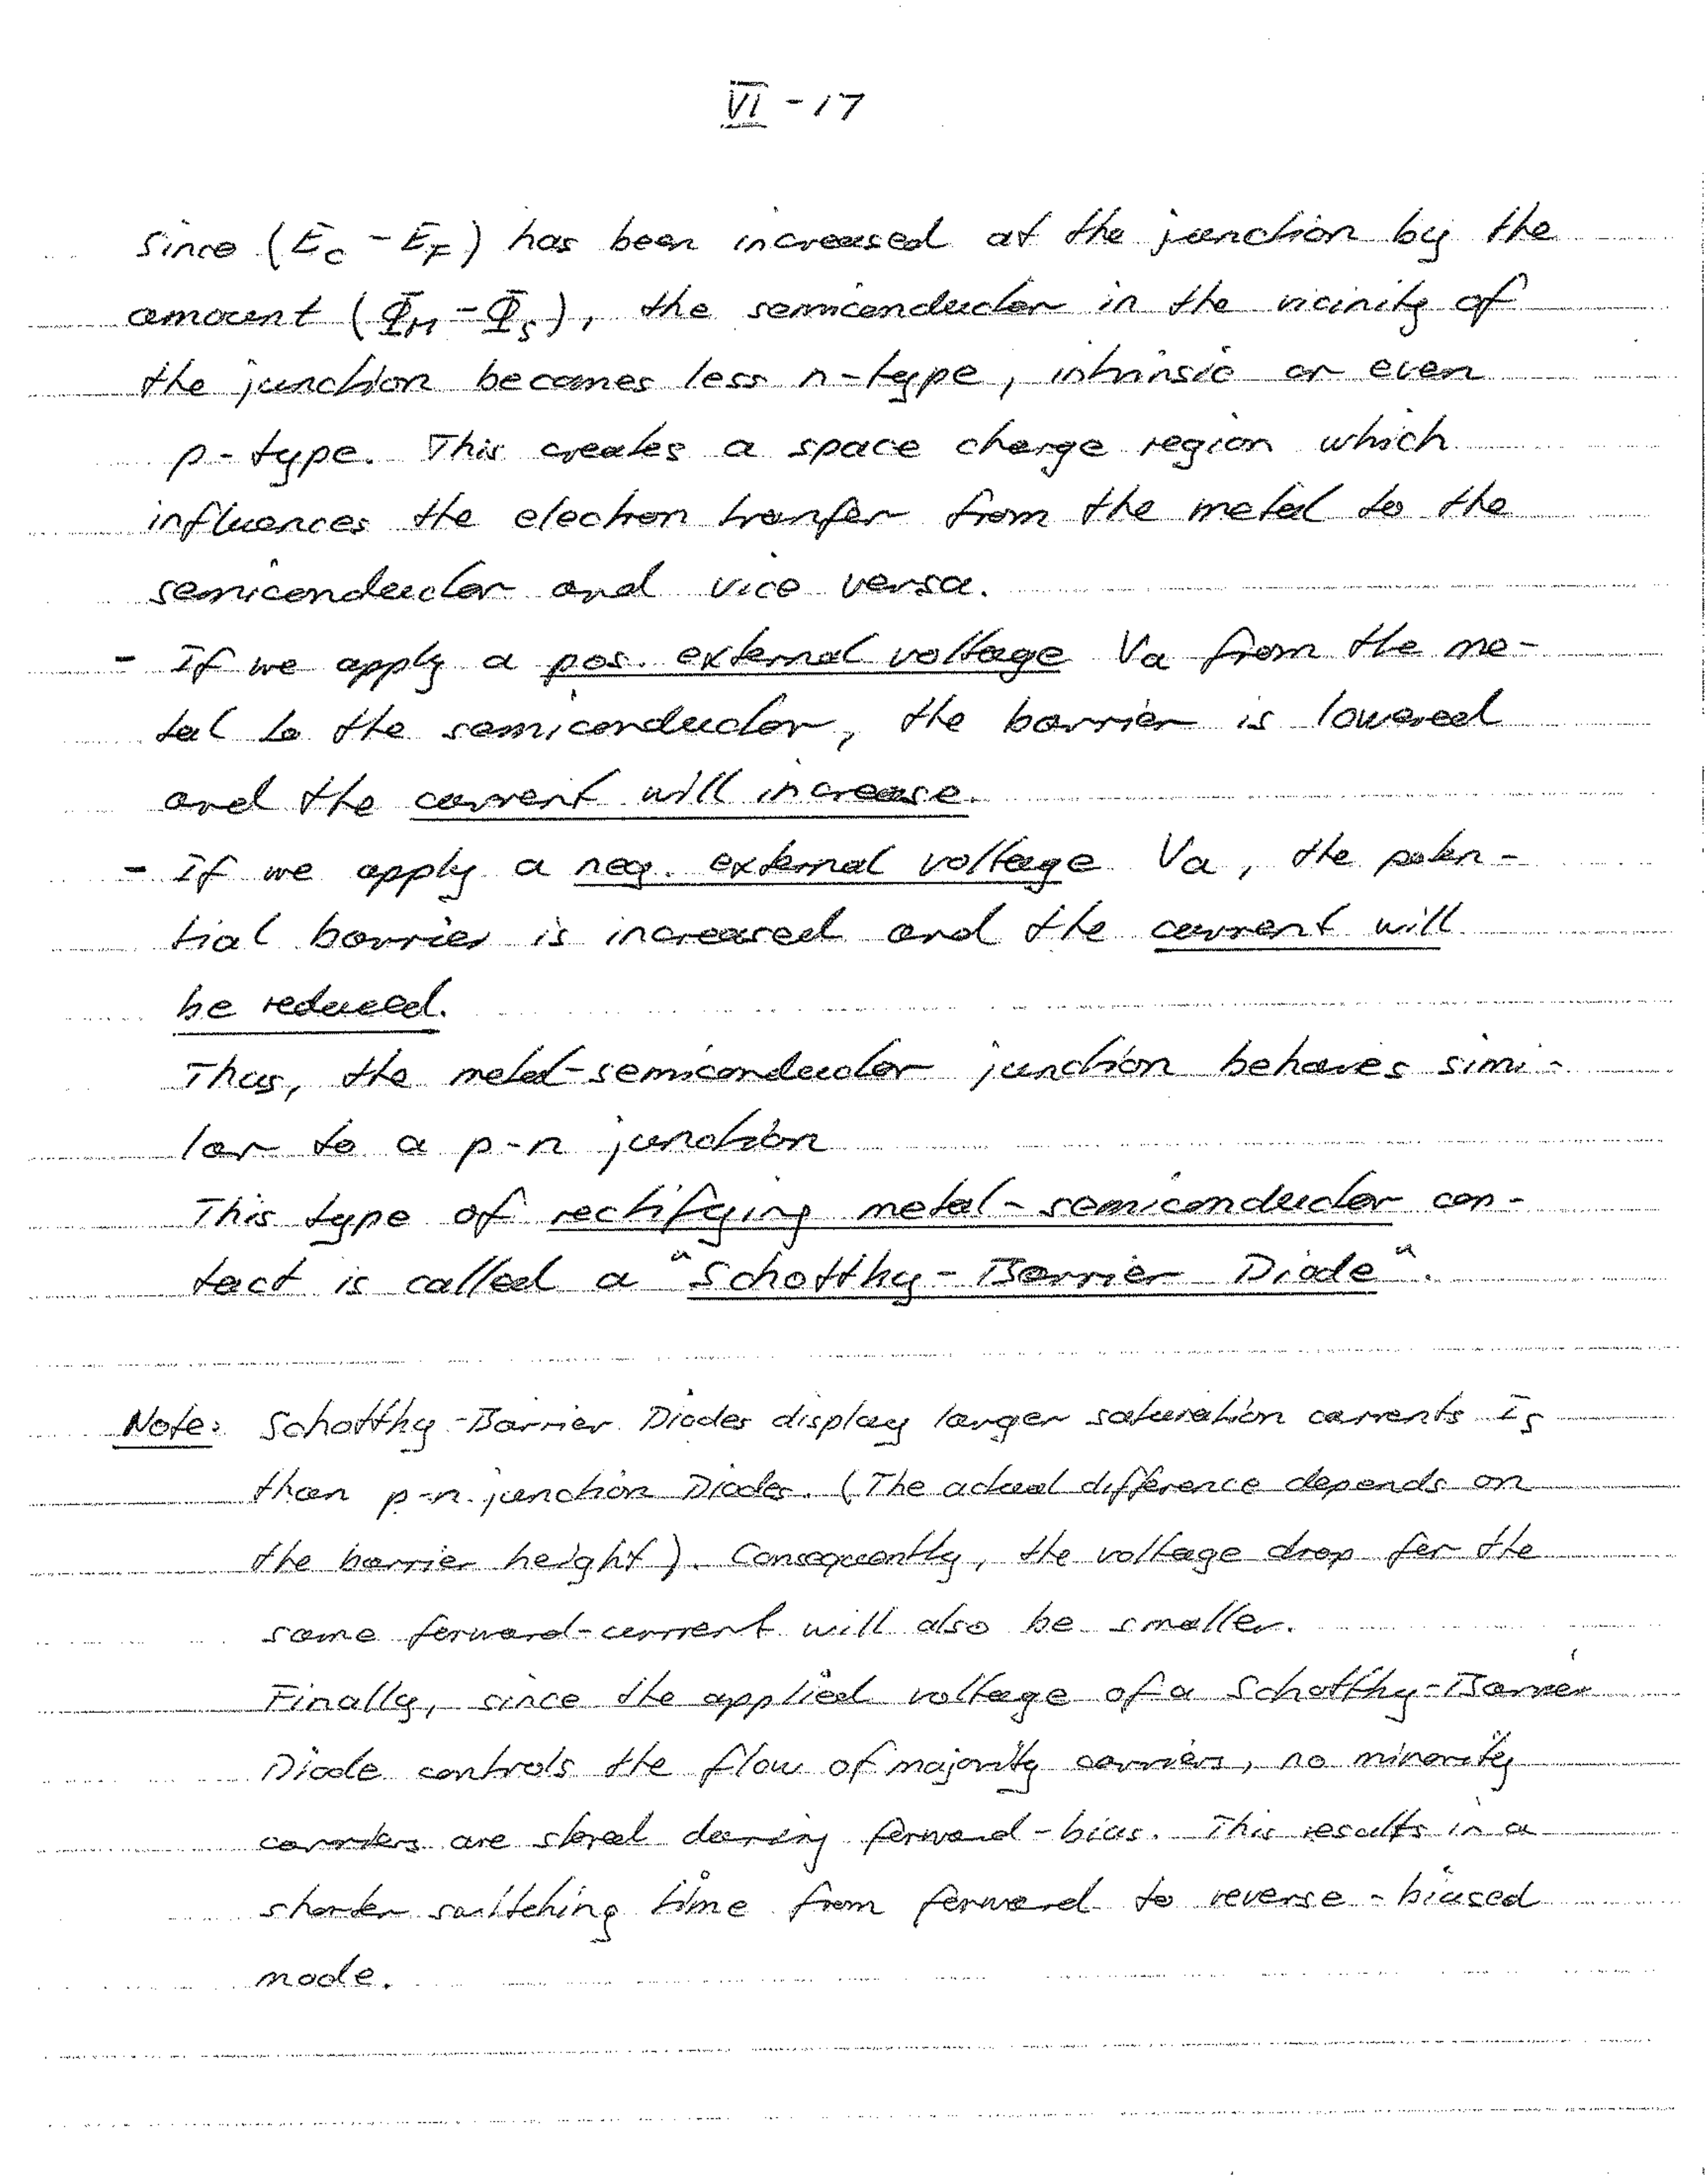 VI - 17
since (E_C - E_F) has been increased at the junction by the
amount (Φ_M - Φ_S), the semiconductor in the vicinity of
the junction becomes less n-type, intrinsic or even
p-type. This creates a space charge region which
influences the electron tranfer from the metal to the
semiconductor and vice versa.
- If we apply a pos. external voltage Va from the me-
tal to the semiconductor, the barrier is lowered
and the current will increase.
- If we apply a neg. external voltage Va, the poten-
tial barrier is increased and the current will
be reduced.
Thus, the metal-semiconductor junction behaves simi-
lar to a p-n junction
This type of rectifying metal-semiconductor con-
tact is called a "Schottky-Barrier Diode".
Note: Schottky-Barrier Diodes display larger saturation currents I_S
than p-n junction Diodes. (The actual difference depends on
the barrier height). Consequently, the voltage drop for the
same forward-current will also be smaller.
Finally, since the applied voltage of a Schottky-Barrier
Diode controls the flow of majority carriers, no minority
carriers are stored during forward-bias. This results in a
shorter switching time from forward to reverse-biased
mode.